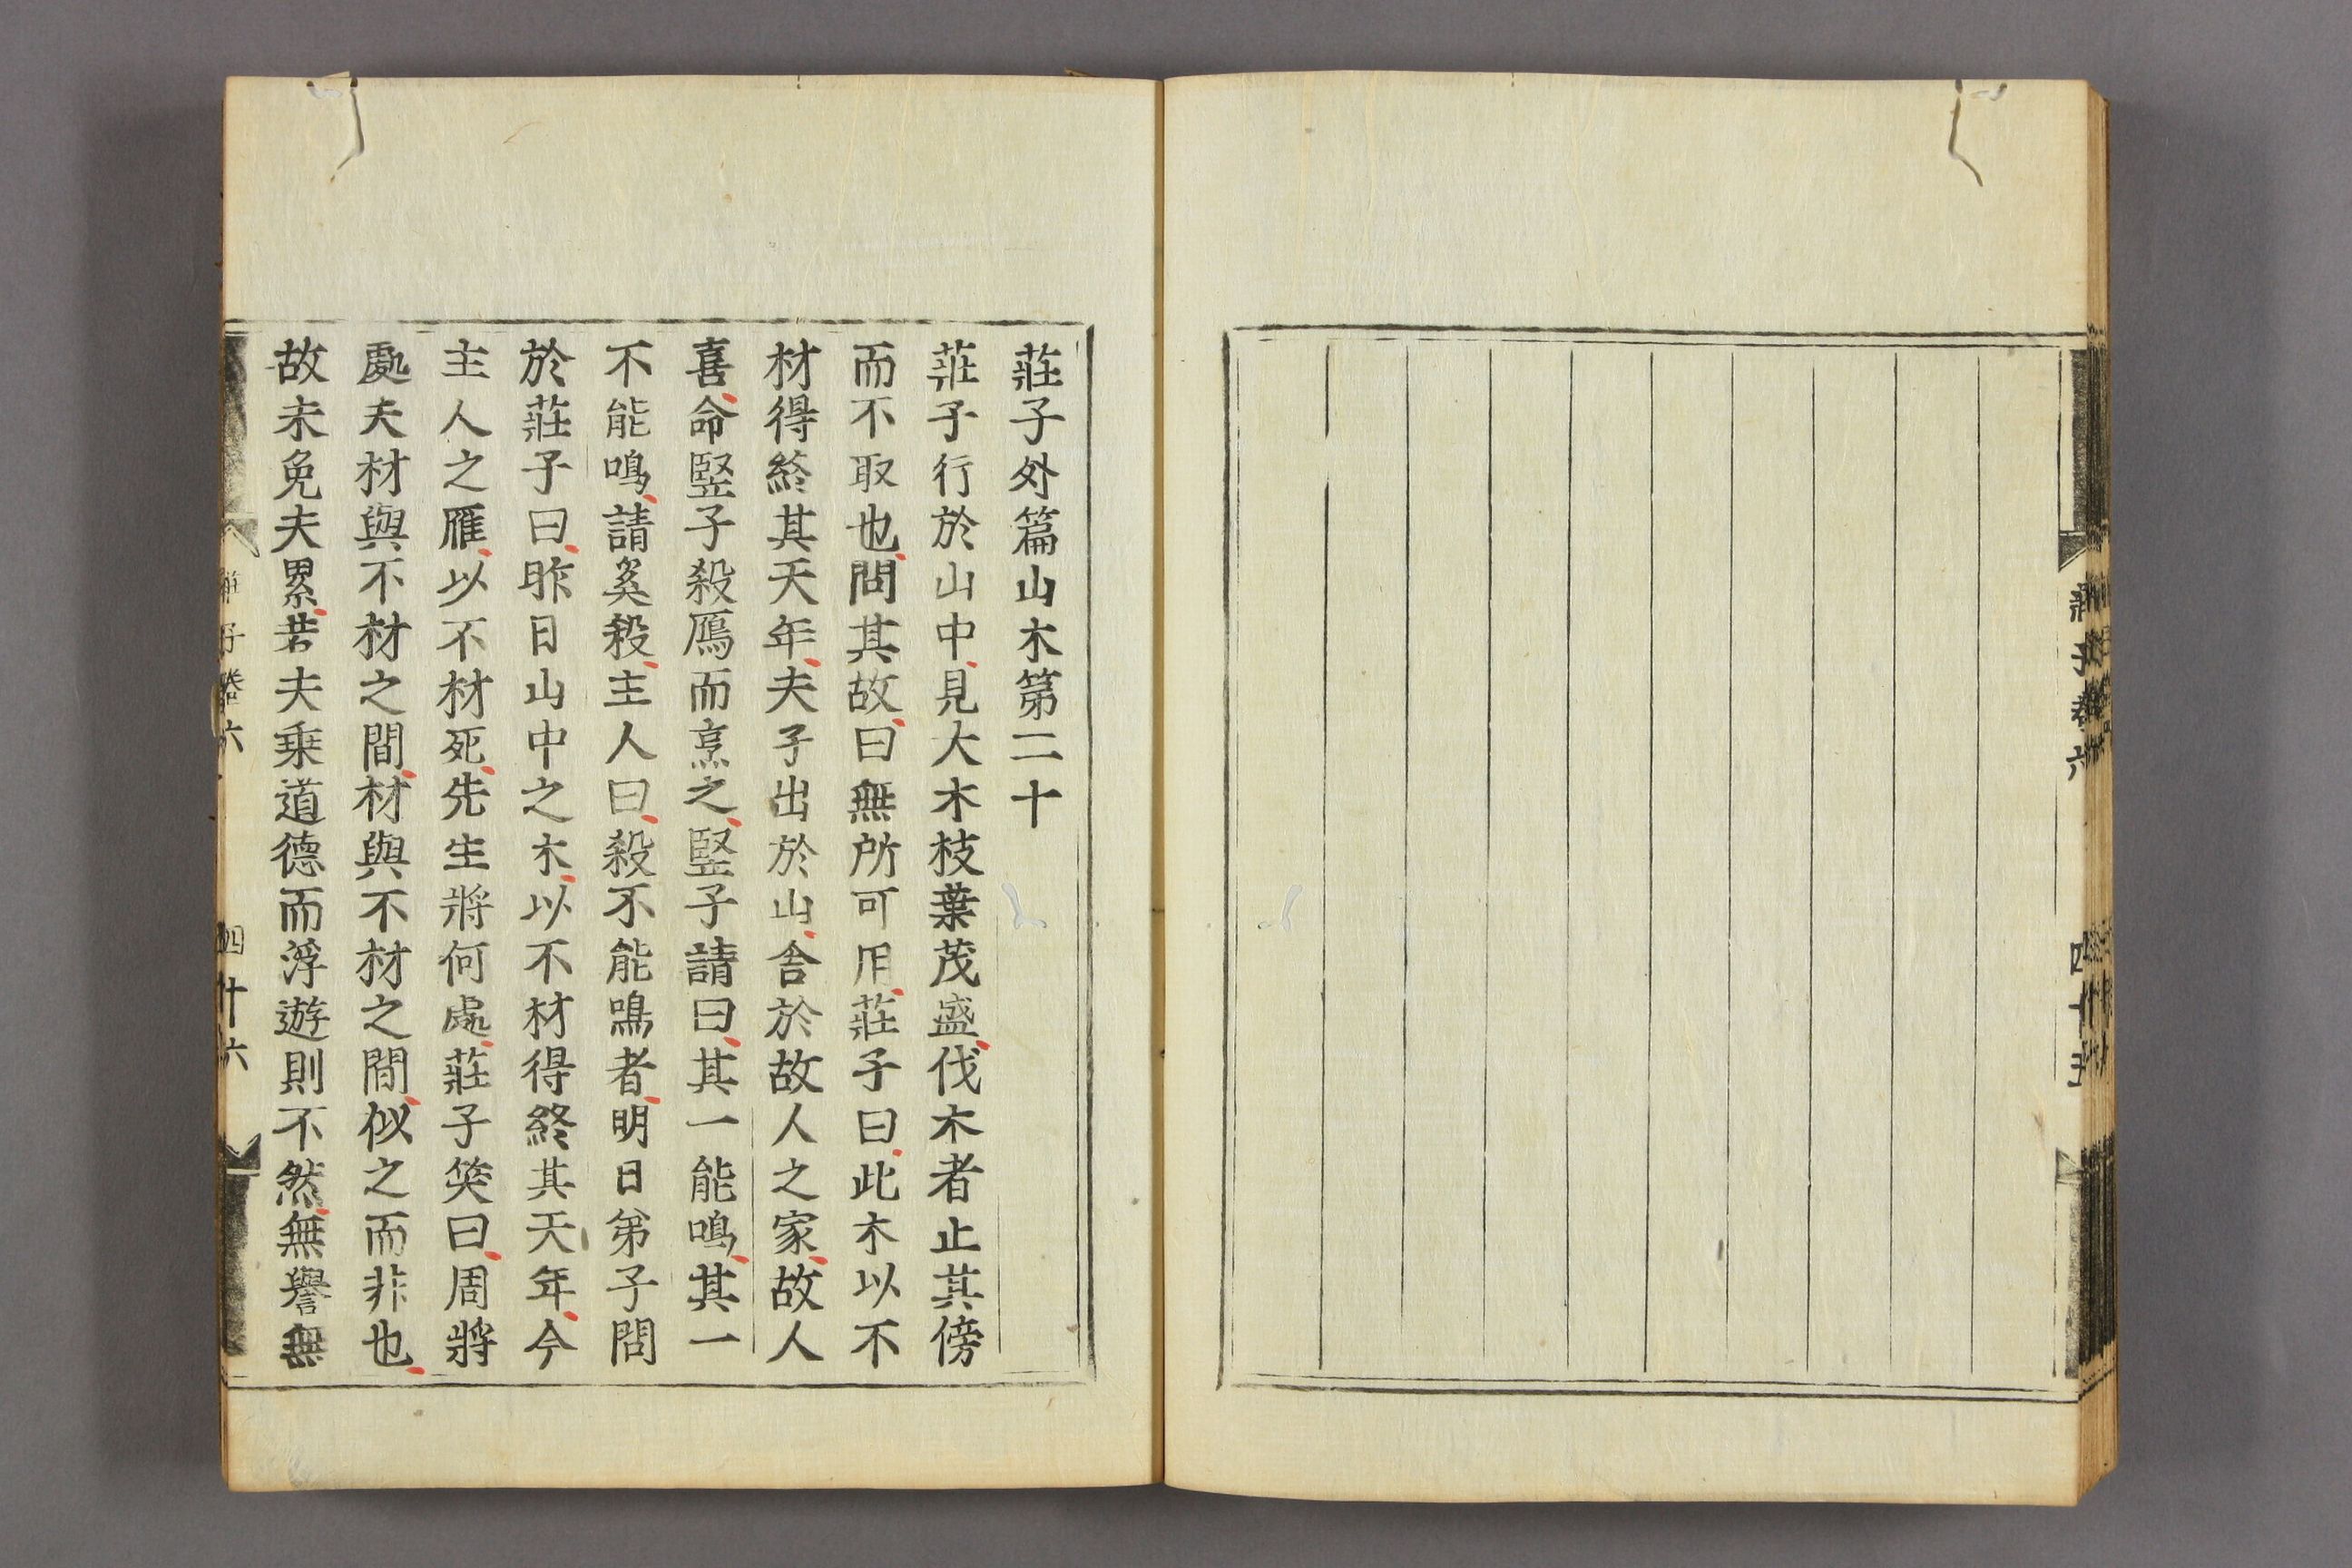 莊子卷六
四十五
莊子外篇山木第二十
莊子行於山中見大木枝葉茂盛伐木者止其傍
而不取也問其故曰無所可用莊子曰此木以不
材得終其天年夫子出於山舍於故人之家故人
喜命竪子殺鴈而烹之竪子請曰其一能鳴其一
不能鳴請奚殺主人曰殺不能鳴者明日弟子問
於莊子曰昨日山中之木以不材得終其天年今
主人之雁以不材死先生將何處莊子笑曰周將
處夫材與不材之間材與不材之間似之而非也
故未免夫累若夫乗道德而浮遊則不然無譽無
莊子卷六
四十六